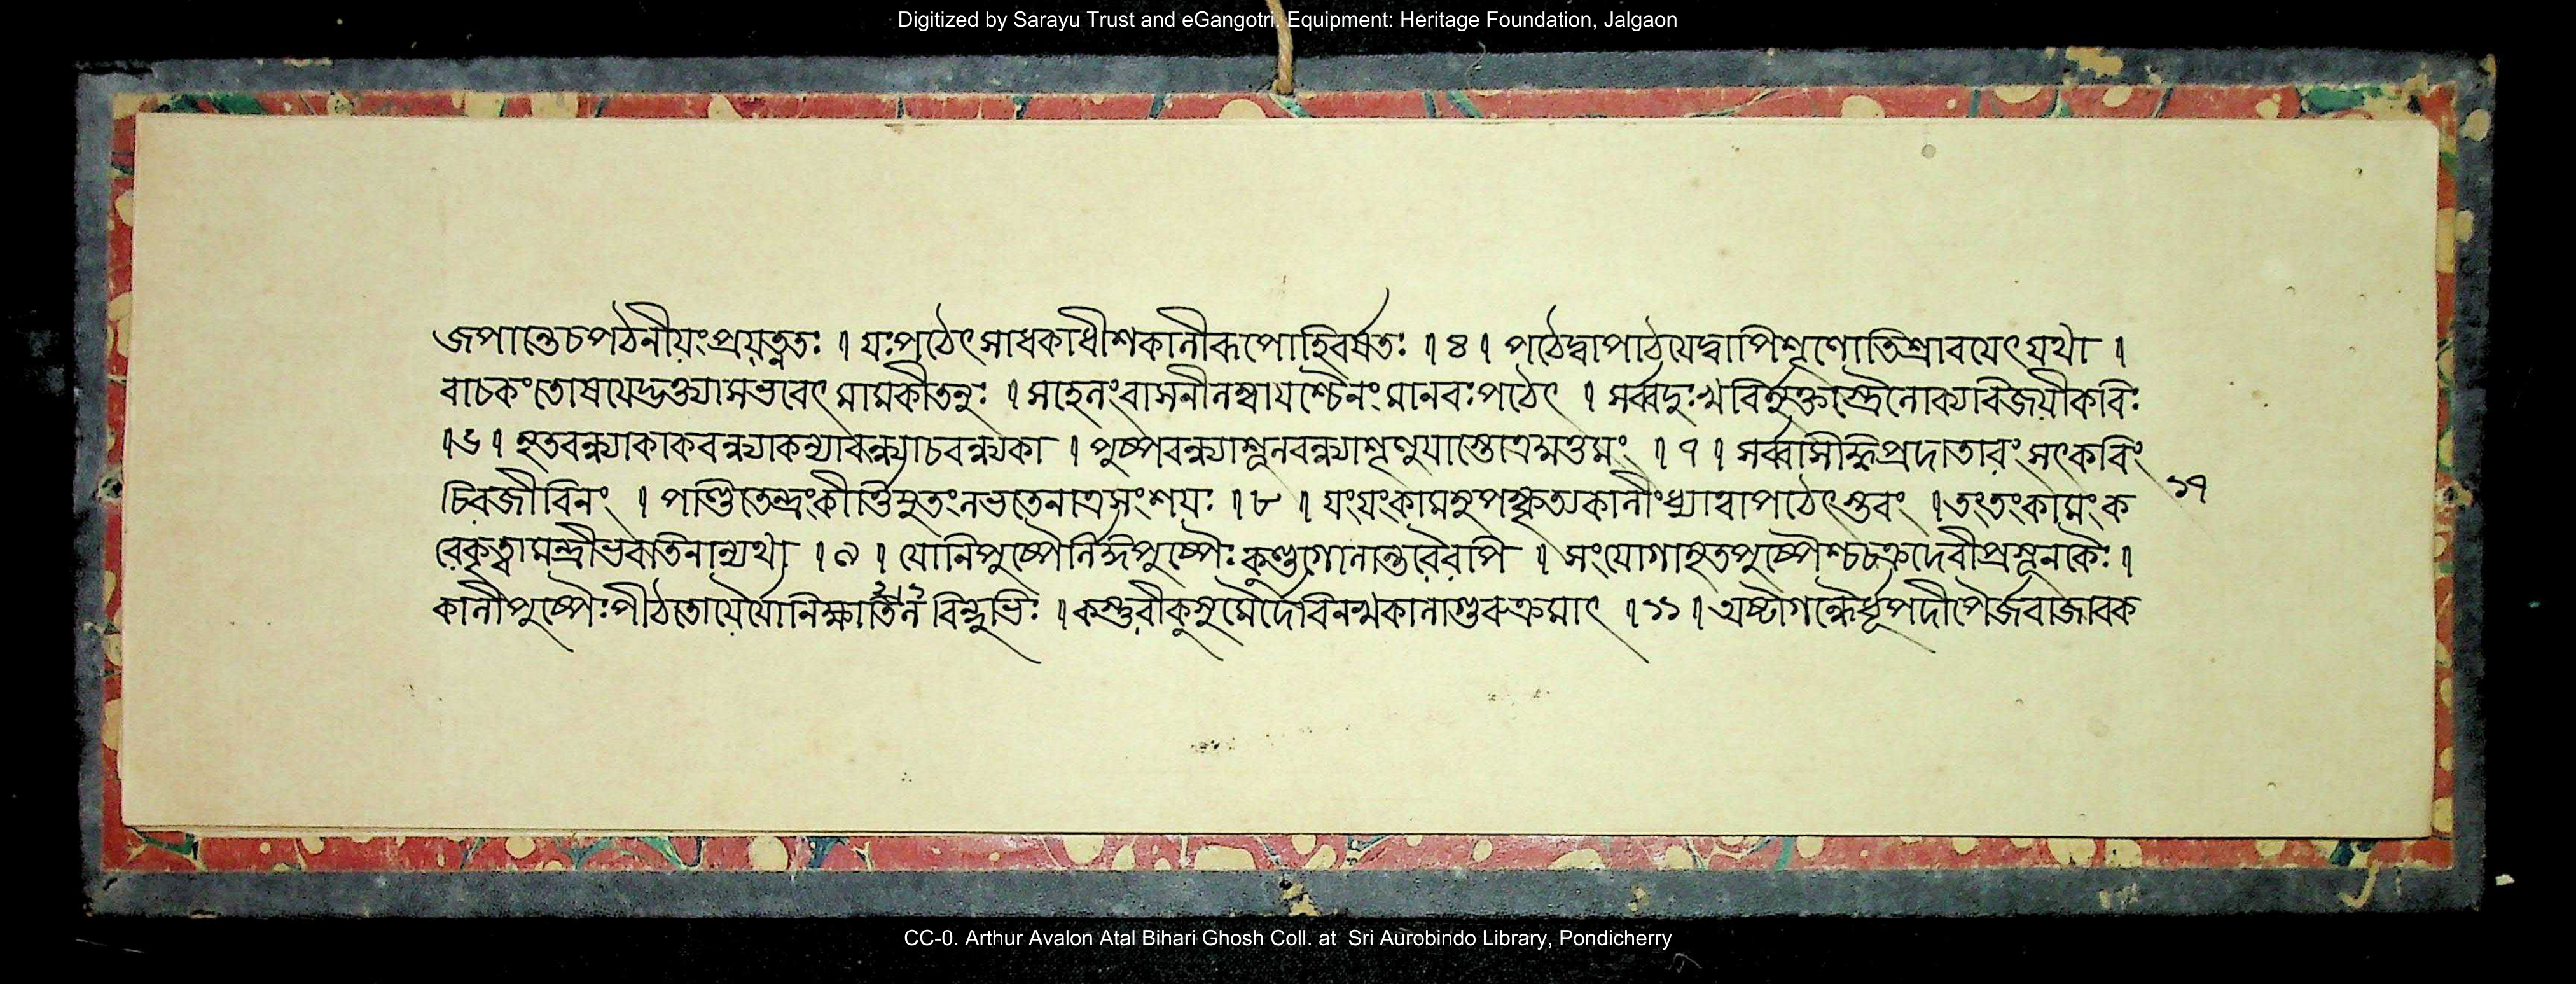 Digitized by Sarayu Trust and eGangotri. Equipment: Heritage Foundation, Jalgaon
জপান্তেচপঠনীয়ংপ্রযত্নতঃ । যঃপঠেৎসাধকাধীশকালীরূপোহিবর্ষতঃ । ৪ । পঠেদ্বাপাঠযেদ্বাপিশৃণোতিশ্রাবযেৎযথা ।
বাচকংতোষযেদ্ভক্ত্যাসভবেৎ মামকীতনুঃ । সহেলংবাসলীলম্বাযশ্চৈনংমানবঃপঠেৎ । সর্ব্বদুঃখবির্ন্মুক্তস্ত্রৈলোক্যবিজয়ীকবিঃ
। ৬ । মৃতবন্ধ্যাকাকবন্ধ্যাকন্যাবন্ধ্যাচবন্ধ্যকা । পুষ্পবন্ধ্যাশূলবন্ধ্যাশৃণুযাস্তোত্রমুত্তমং । ৭ । সর্ব্বাসিদ্ধিপ্রদাতারংসৎকবিং
চিরজীবিনং । পাণ্ডিতেন্দ্রংকীর্ত্তিযুতংলভতেনাত্রসংশয়ঃ । ৮ । যংযংকামমুপস্কৃত্যকালীংধ্যাত্বাপঠেৎস্তবং । তংতংকামংক
১৭
রেকৃত্বামন্ত্রীভবতিনান্যথা । ৯ । যোনিপুষ্পৈর্লিঙ্গপুষ্পৈঃকুণ্ডগোলোদ্ভবৈরপি । সংযোগামৃতপুষ্পৈশ্চচক্রদেবীপ্রসূনকৈঃ ।
কালীপুষ্পৈঃপীঠতোযৈর্যোনিক্ষালন বিন্দুভিঃ । কস্তুরীকুঙ্কুমৈর্দেবিনখকালাগুরুক্রমাৎ । ১১ । অষ্টাগন্ধৈর্ধূপদীপৈর্জবাজাবক
CC-0. Arthur Avalon Atal Bihari Ghosh Coll. at Sri Aurobindo Library, Pondicherry